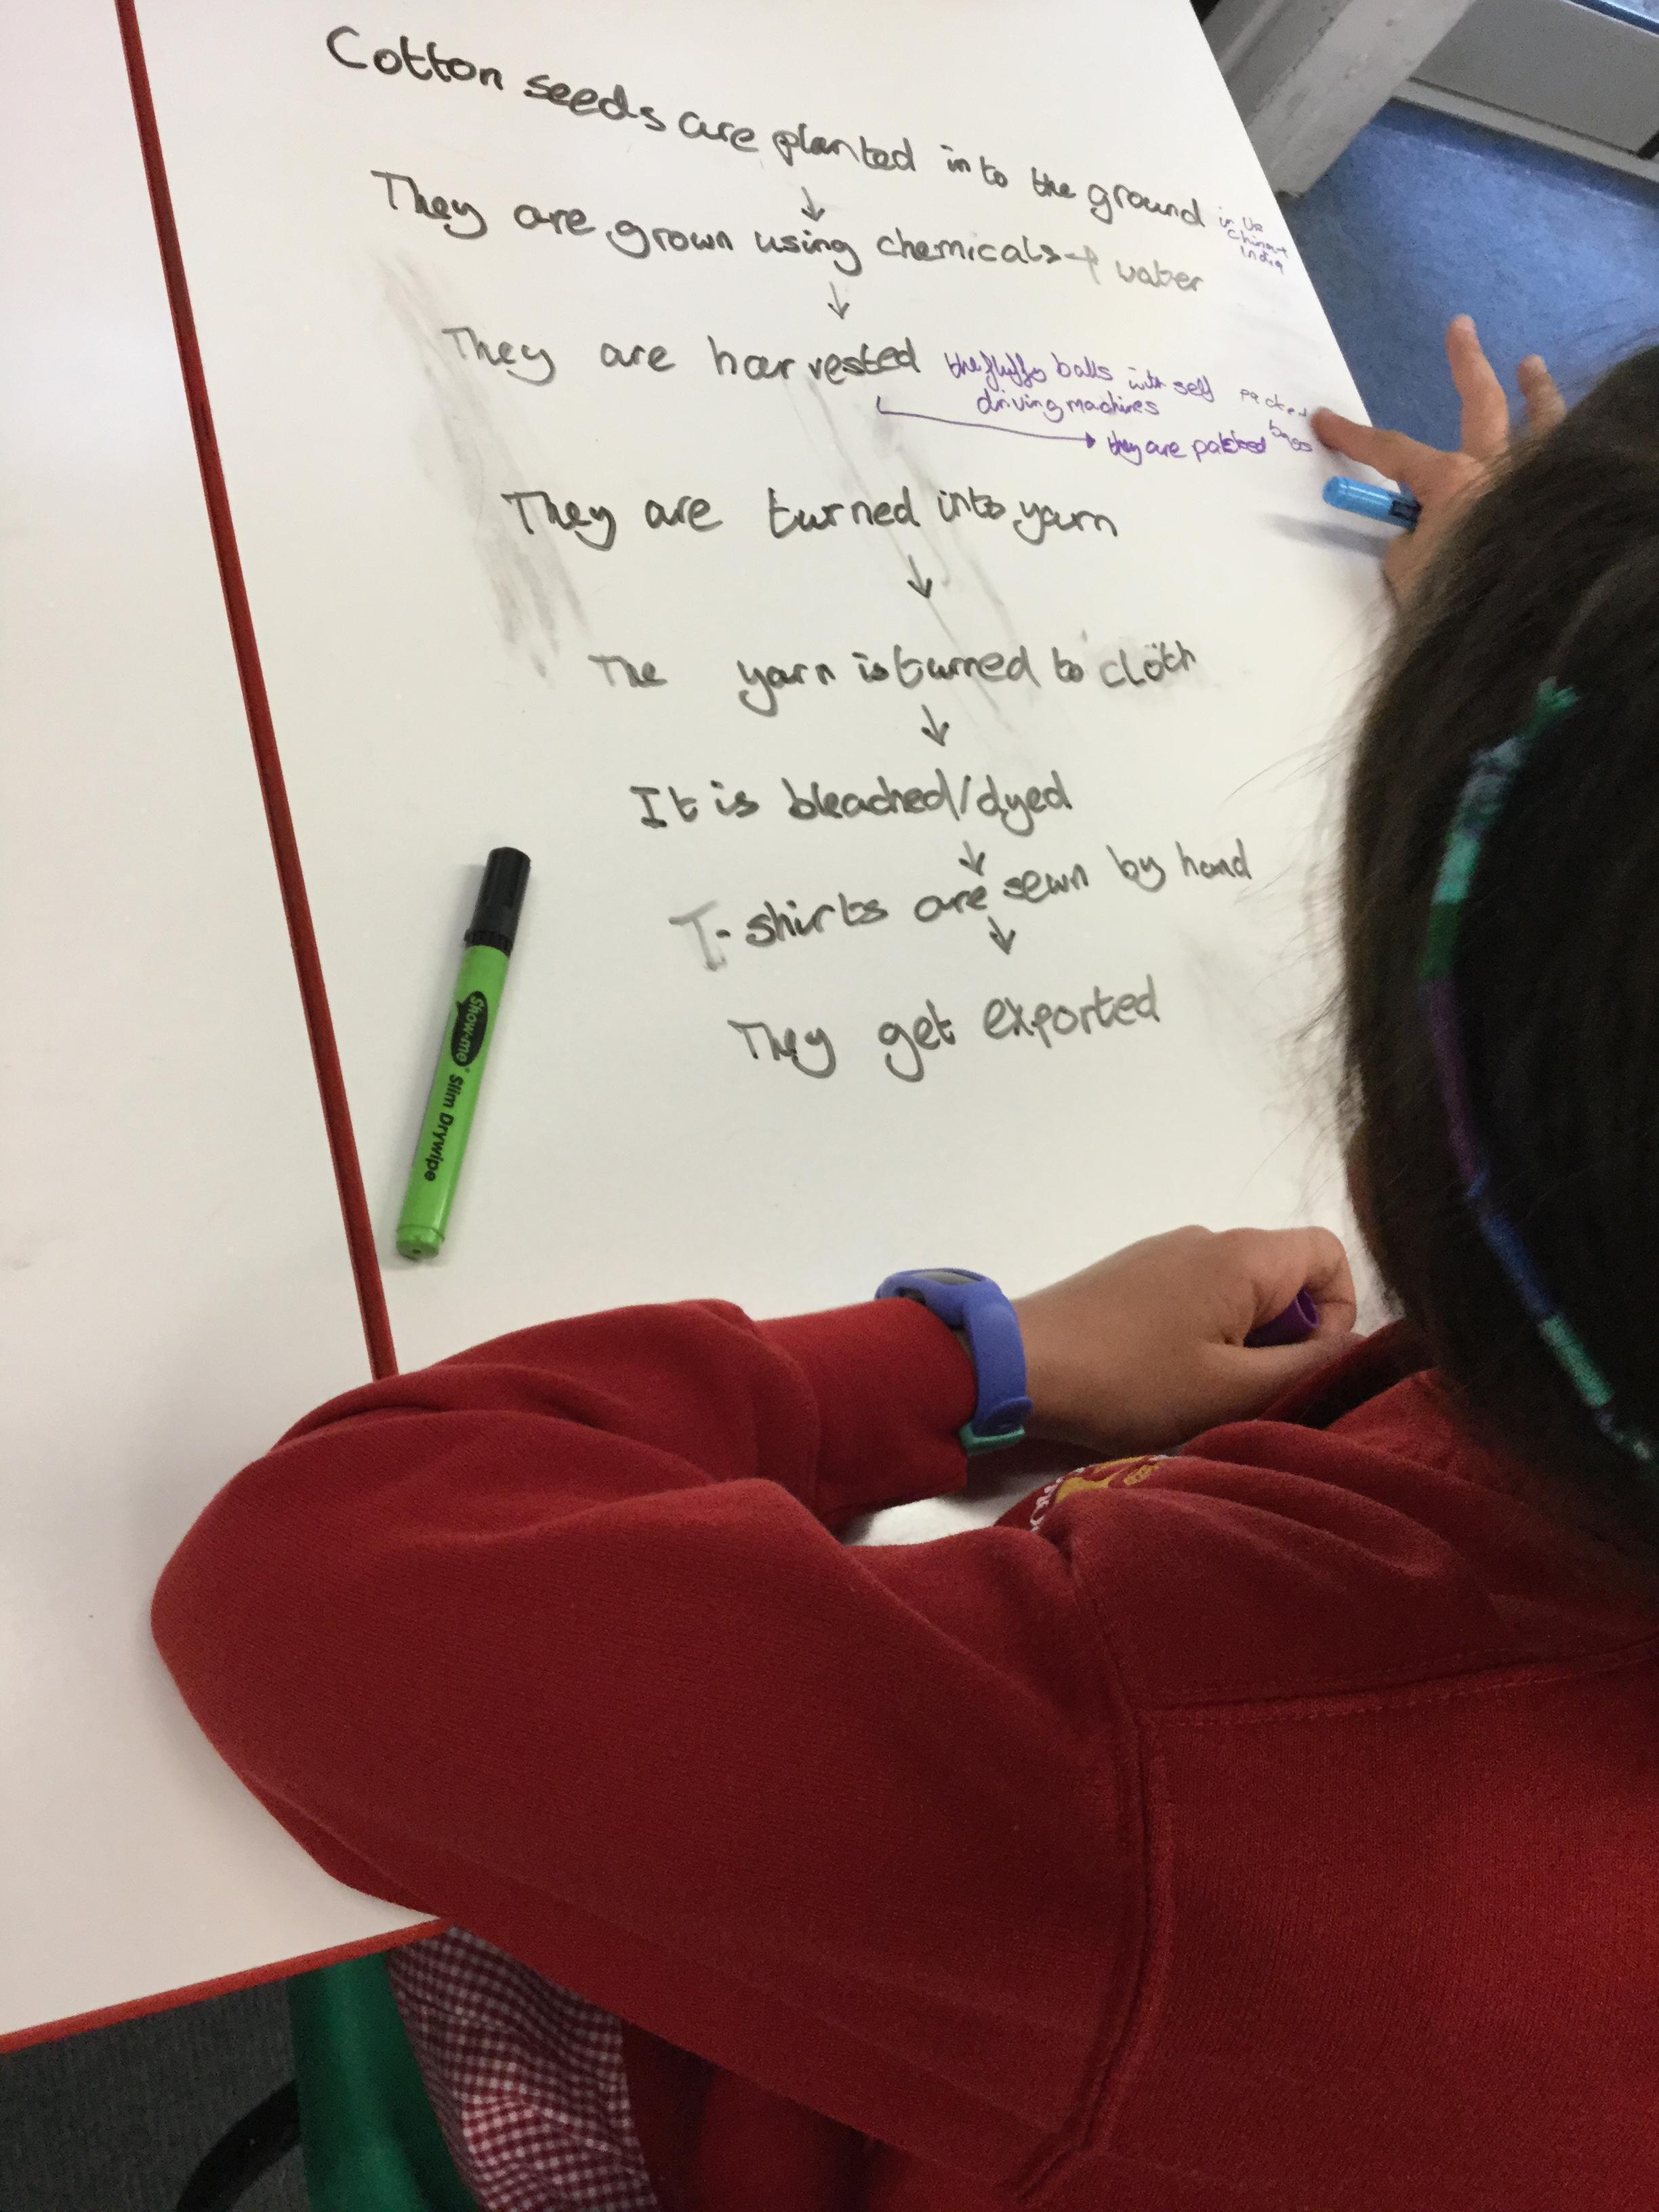 Cotton seeds are planted in to the ground in Us
China +
India
↓
They are grown using chemicals + water
↓
They are harvested the fluffy balls with self
driving machines
they are packed bags
They are turned into yarn
↓
The yarn is turned to cloth
↓
It is bleached/dyed
↓
T-shirts are sewn by hand
↓
They get exported
Show-me Slim Drywipe